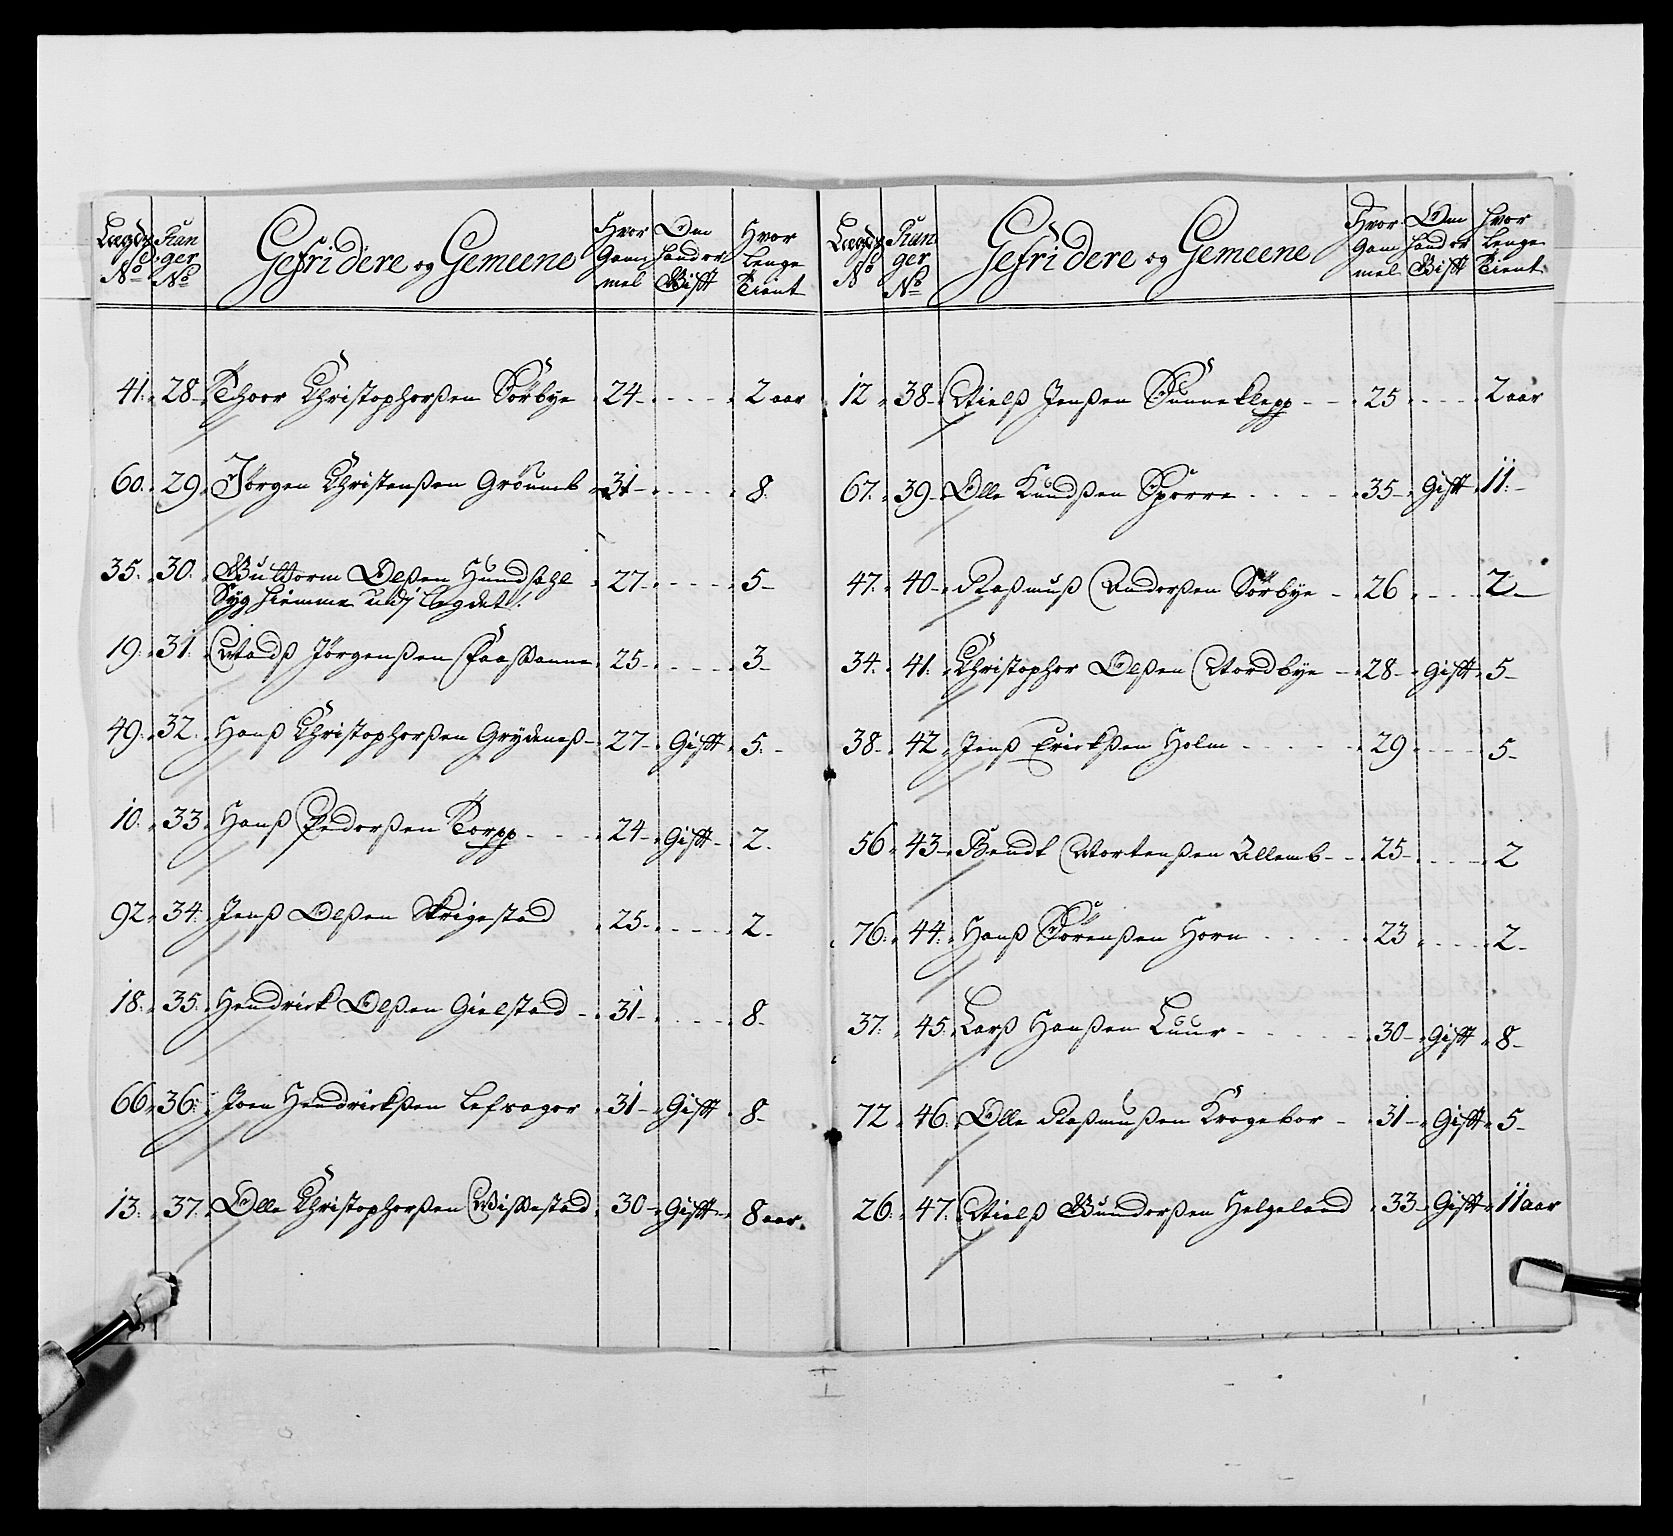 Lægds No Ran ger No Gefridere og Gemeene Hvor Gam mel Om hand er Gifft Hvor lenge Tient
41. 28. Thoor Christophersßen Sörbye 24 2 aar
60. 29. Jörgen Christenßen Gröümb 31 8
35. 30. Guttorm Olßen Hundsahl 27 5
Syg hiemme udj Legdet
19. 31. Madß Jörgenßen 25 3
49. 32. Hanß Christopherßen Grydeneß 27 Gifft 5
10. 33. Hanß Pederßen Torpp 24 Gifft 2
92. 34. Jenß Olßen Skrigestad 25 2
18. 35. Hendrick Olßen Gielstad 31 8
66. 36. Joen Hendrickßen Lefsager 31 Gifft 8
13. 37. Olle Christopherßen 30 Gifft 8 aar
Lægds No Ran ger No Gefridere og Gemeene Hvor Gam mel Om hand er Gifft hvor lenge Tient
12 38 Nielß Jenßen Sunneklepp 25 2 aar
67. 39 Olle Knudßen Sporre 35 Gifft 11
47. 40 Raßmuß Anderßen Sörbye 26 2
34. 41. Christopher Olßen Nordbye 28 Gifft 5
38 42 Jenß Erickßen Holm 29 5
56 43 Bendt Mortenßen Ullemb 25 2
76. 44. Hanß Sörenßen Horn 23 2
37. 45. Larß Hanßen Luur 30 Gifft 8
72 46. Olle Raßmußen Krogebor 31 Gifft 5
26. 47. Nielß Gunderßen Helgeland 33 Gifft 11 aar